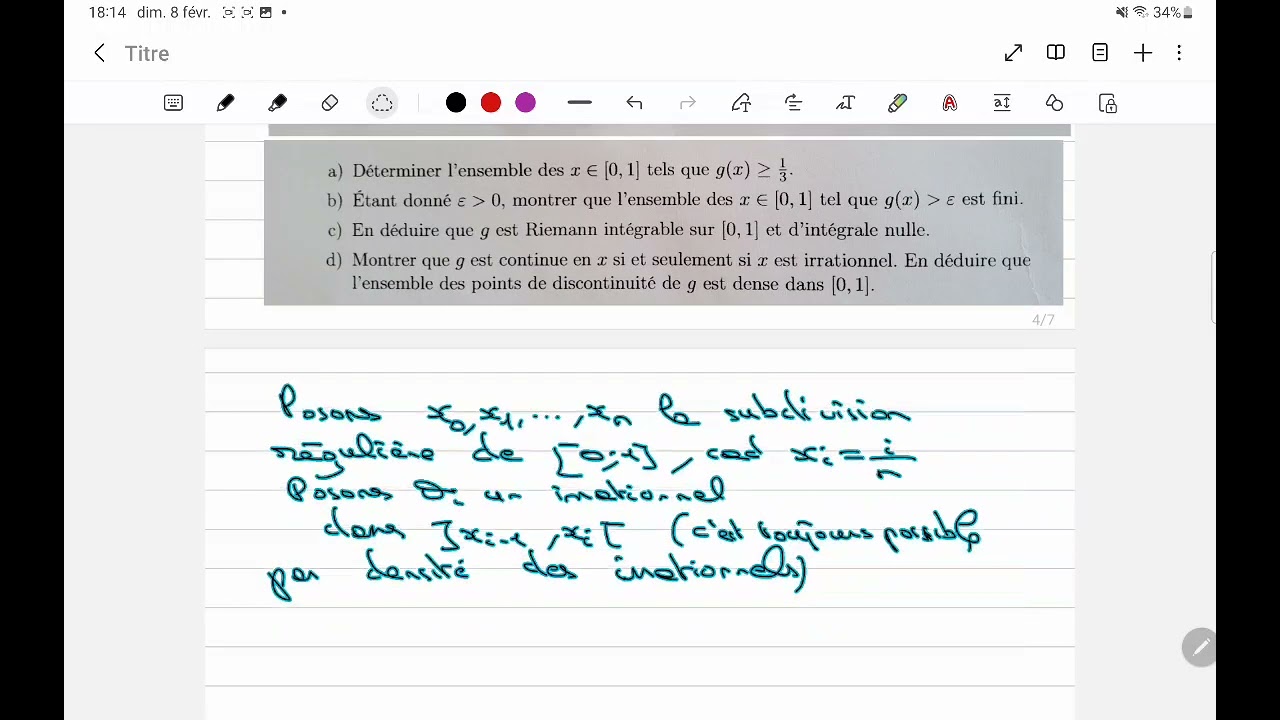 18:14 dim. 8 févr. 34%
Titre
a) Déterminer l'ensemble des x ∈ [0, 1] tels que g(x) ≥ 1/3.
b) Étant donné ε > 0, montrer que l'ensemble des x ∈ [0, 1] tel que g(x) > ε est fini.
c) En déduire que g est Riemann intégrable sur [0, 1] et d'intégrale nulle.
d) Montrer que g est continue en x si et seulement si x est irrationnel. En déduire que
l'ensemble des points de discontinuité de g est dense dans [0, 1].
4/7
Posons x₀, x₁, ..., xₙ la subdivision
régulière de [0;1], cad xᵢ = i/n
Posons θᵢ un irrationnel
dans ]xᵢ₋₁, xᵢ[ (c'est toujours possible
par densité des irrationnels)